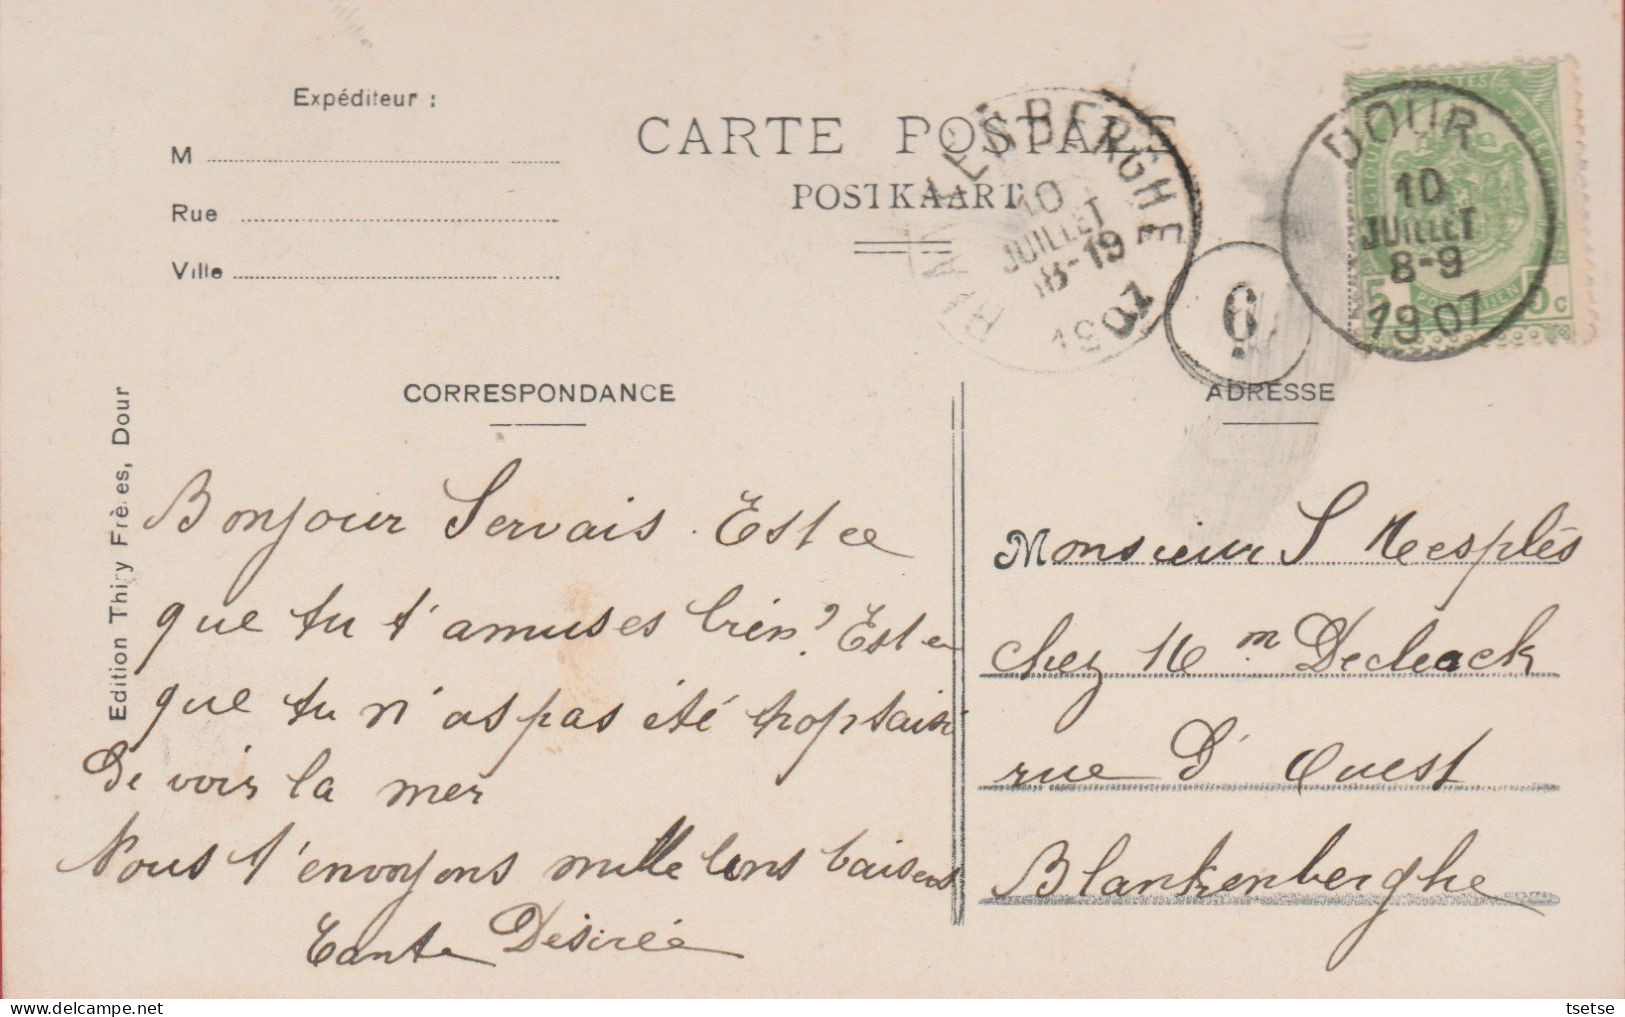 Expéditeur :
M
Rue
Ville
CARTE POSTALE
POSTKAART
BLANKENBERGHE
10
JUILLET
18-19
1907
6
DOUR
10
JUILLET
8-9
1907
5 POSTERIJEN 5c
CORRESPONDANCE
ADRESSE
Edition Thiry Frères, Dour
Bonjour Servais. Est ce
que tu t'amuses bien? Est ce
que tu n'as pas été trop saisi
De voir la mer
Nous t'envoyons mille bons baisers
Tante Désirée
Monsieur S Neesplés
chez Mm
rue D'Ouest
Blankenberghe
tsetse